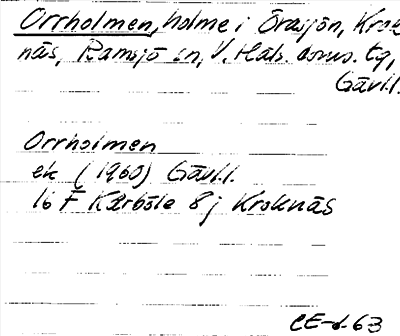 Orrholmen, holme i Orasjön, Krok-
näs, Ramsjö sn, V. Häls. doms. tg,
Gävl.l.
Orrholmen
ek (1960) Gävl.l.
16 F Kårböle 8 j Kroknäs
CE-d-63